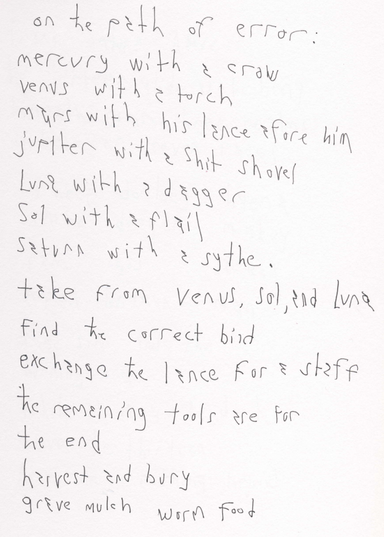 on the path of error:
mercury with a craw
venus with a torch
mars with his lance afore him
jupiter with a shit shovel
Luna with a dagger
Sol with a flail
saturn with a sythe.
take from venus, sol, and Luna
find the correct bird
exchange the lance for a staff
the remaining tools are for
the end
harvest and bury
grave mulch worm food